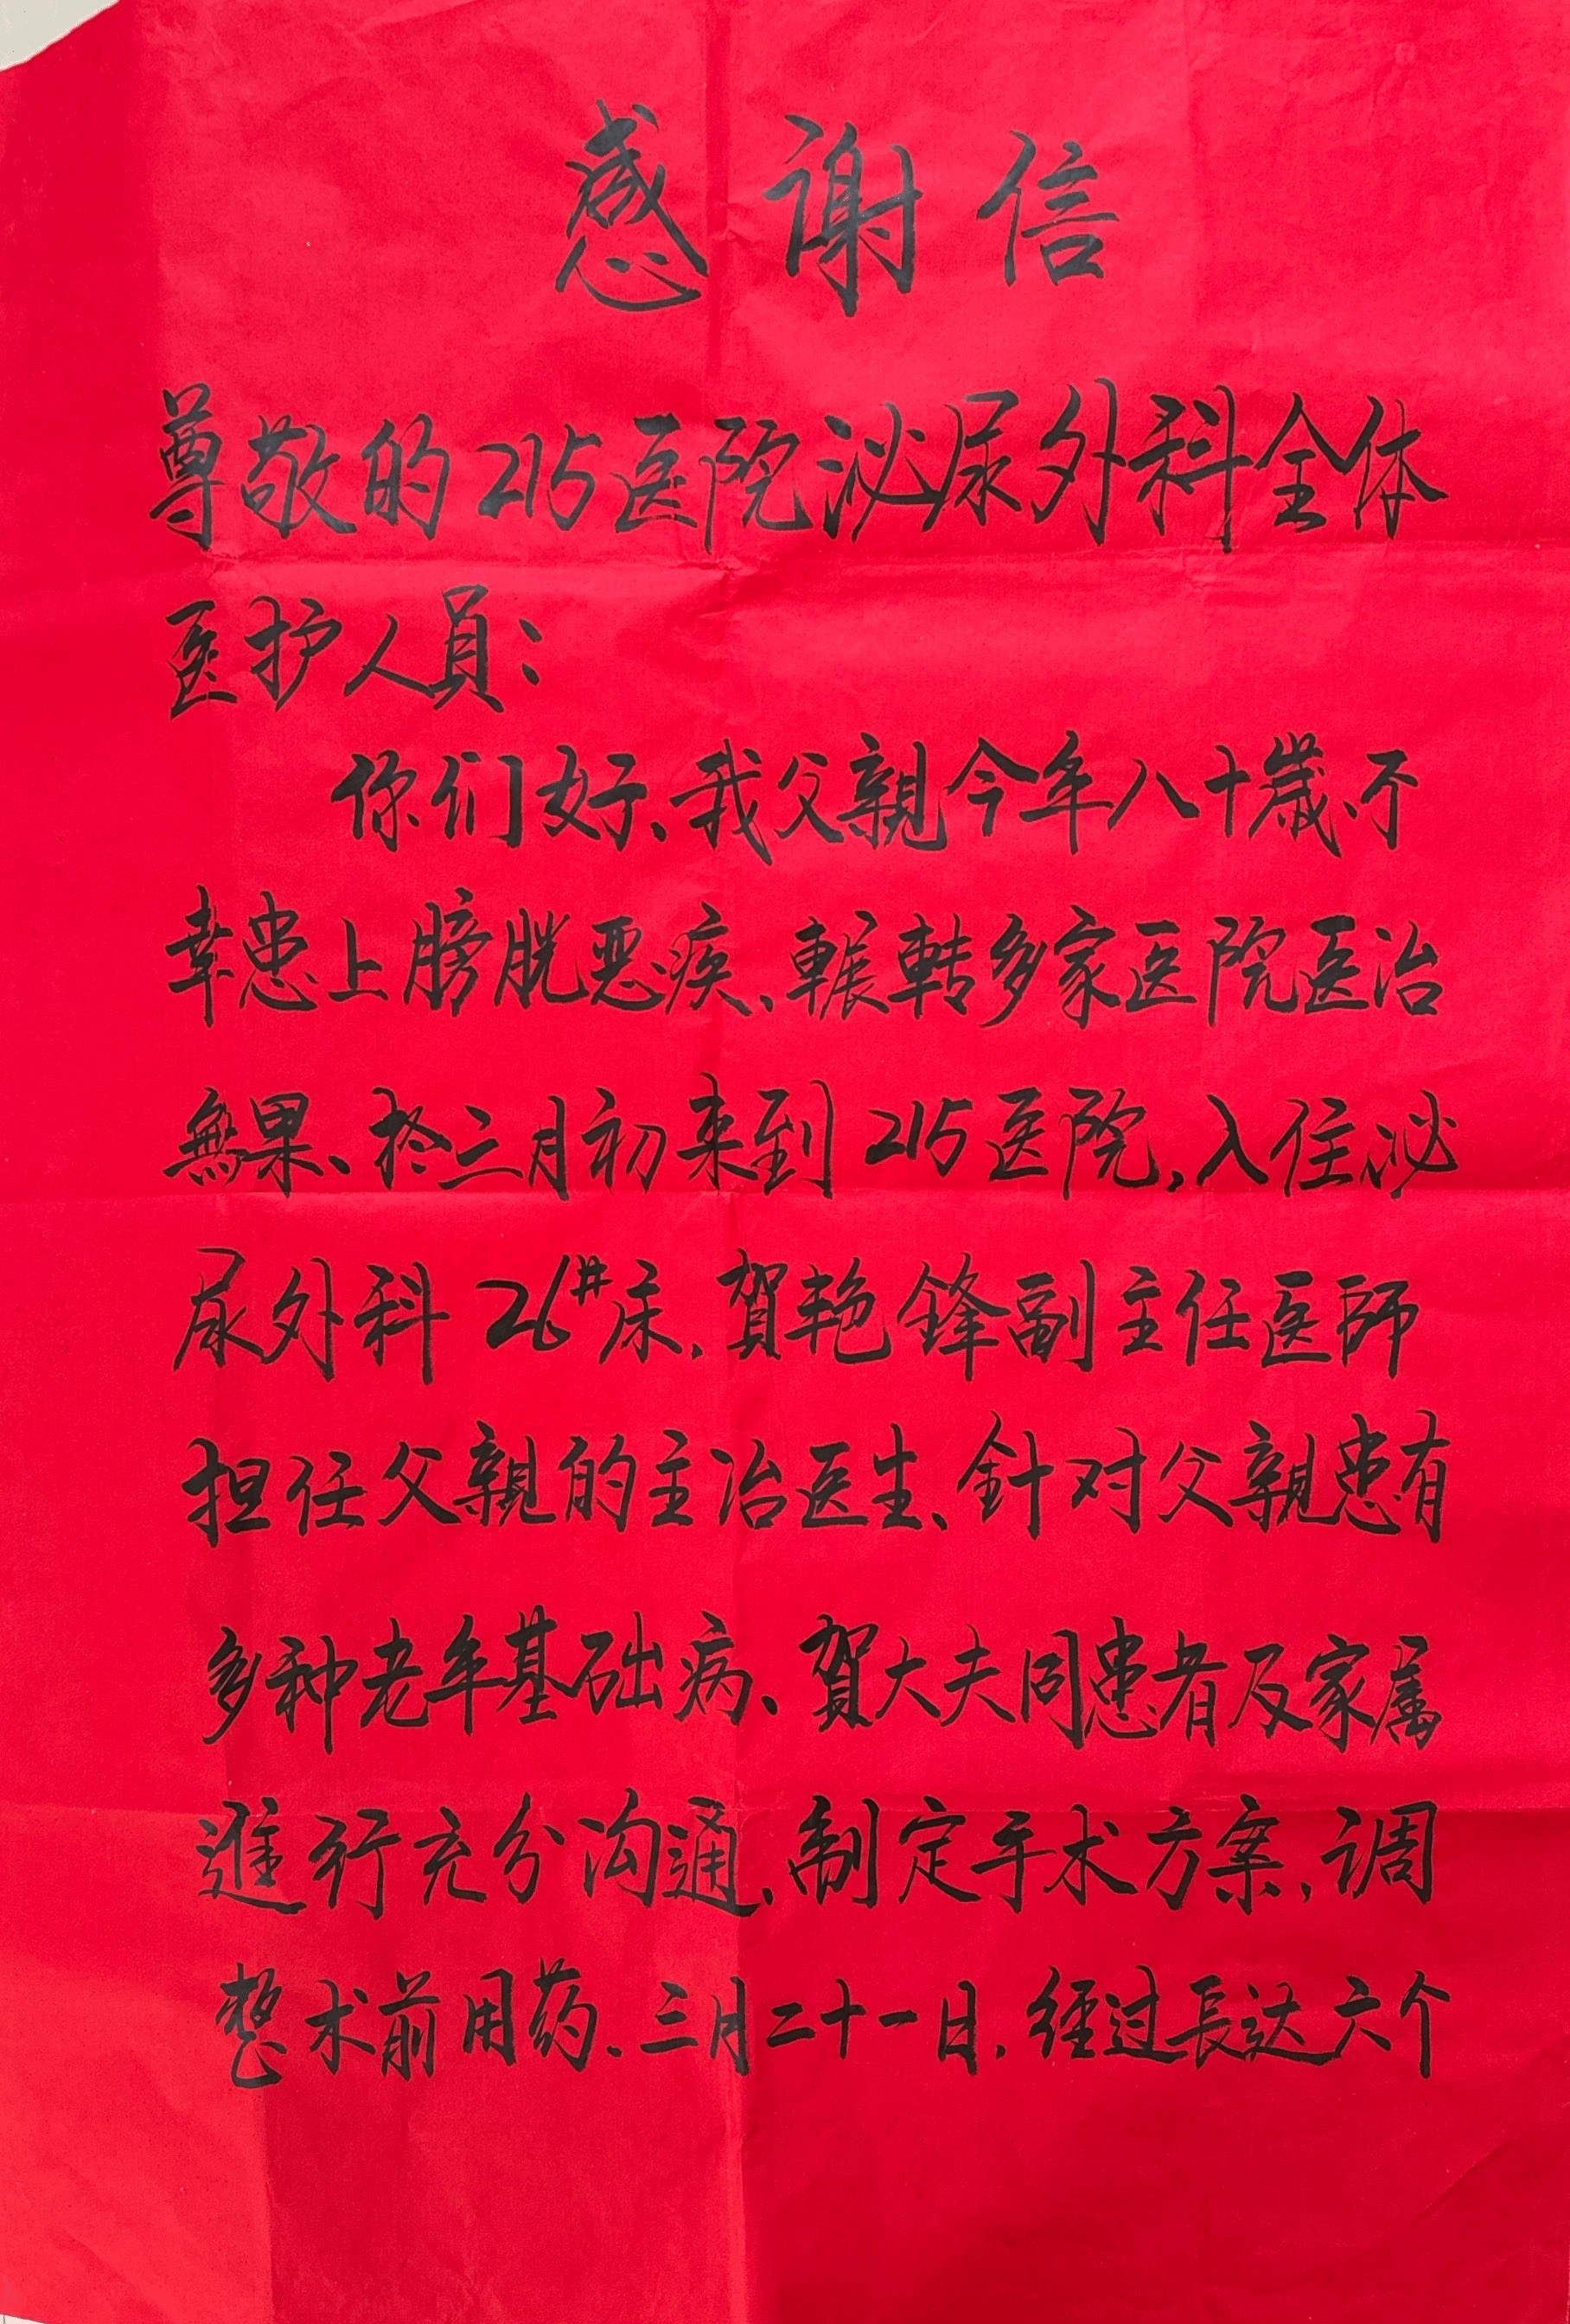 感谢信
尊敬的215医院泌尿外科全体
医护人員：
你们好、我父親今年八十歲、不
幸患上膀胱恶疾、輾转多家医院医治
無果、於三月初来到215医院,入住泌
尿外科26#床,賀艳鋒副主任医師
担任父親的主治医生、針对父親患有
多种老年基础病、賀大夫同患者及家属
進行充分沟通、制定手术方案,调
整术前用药.三月二十一日,經过長达六个